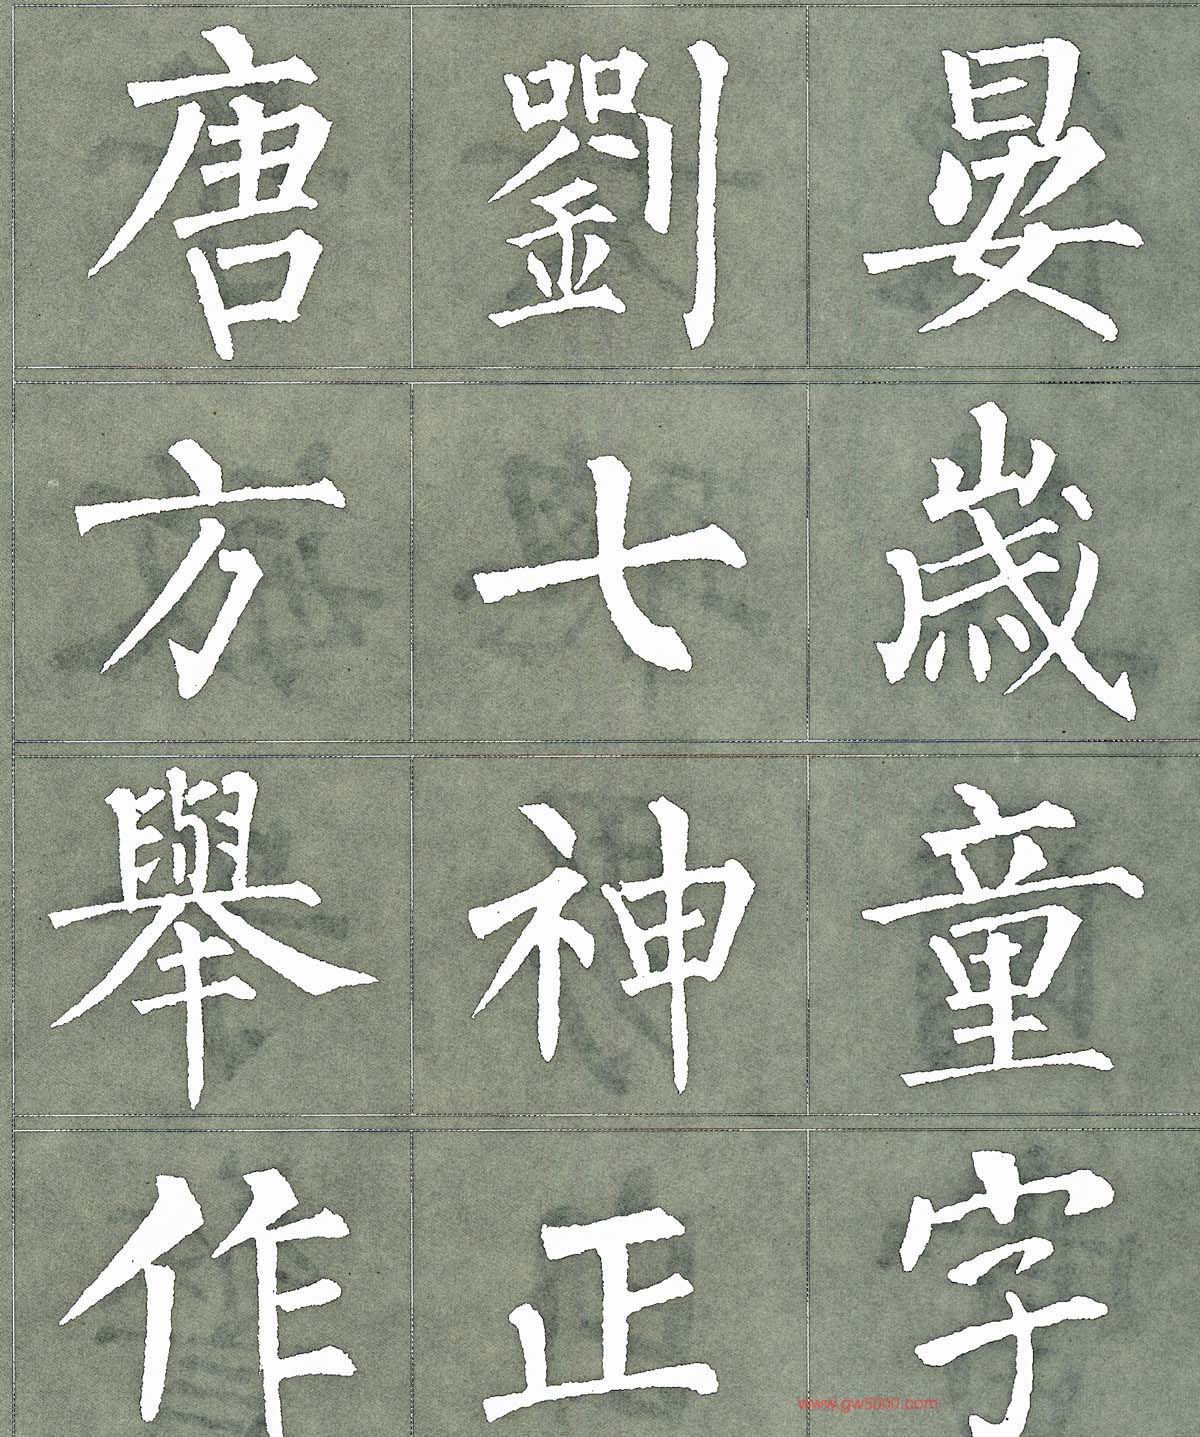 唐劉晏
方七歲
舉神童
作正字
www.gw5000.com